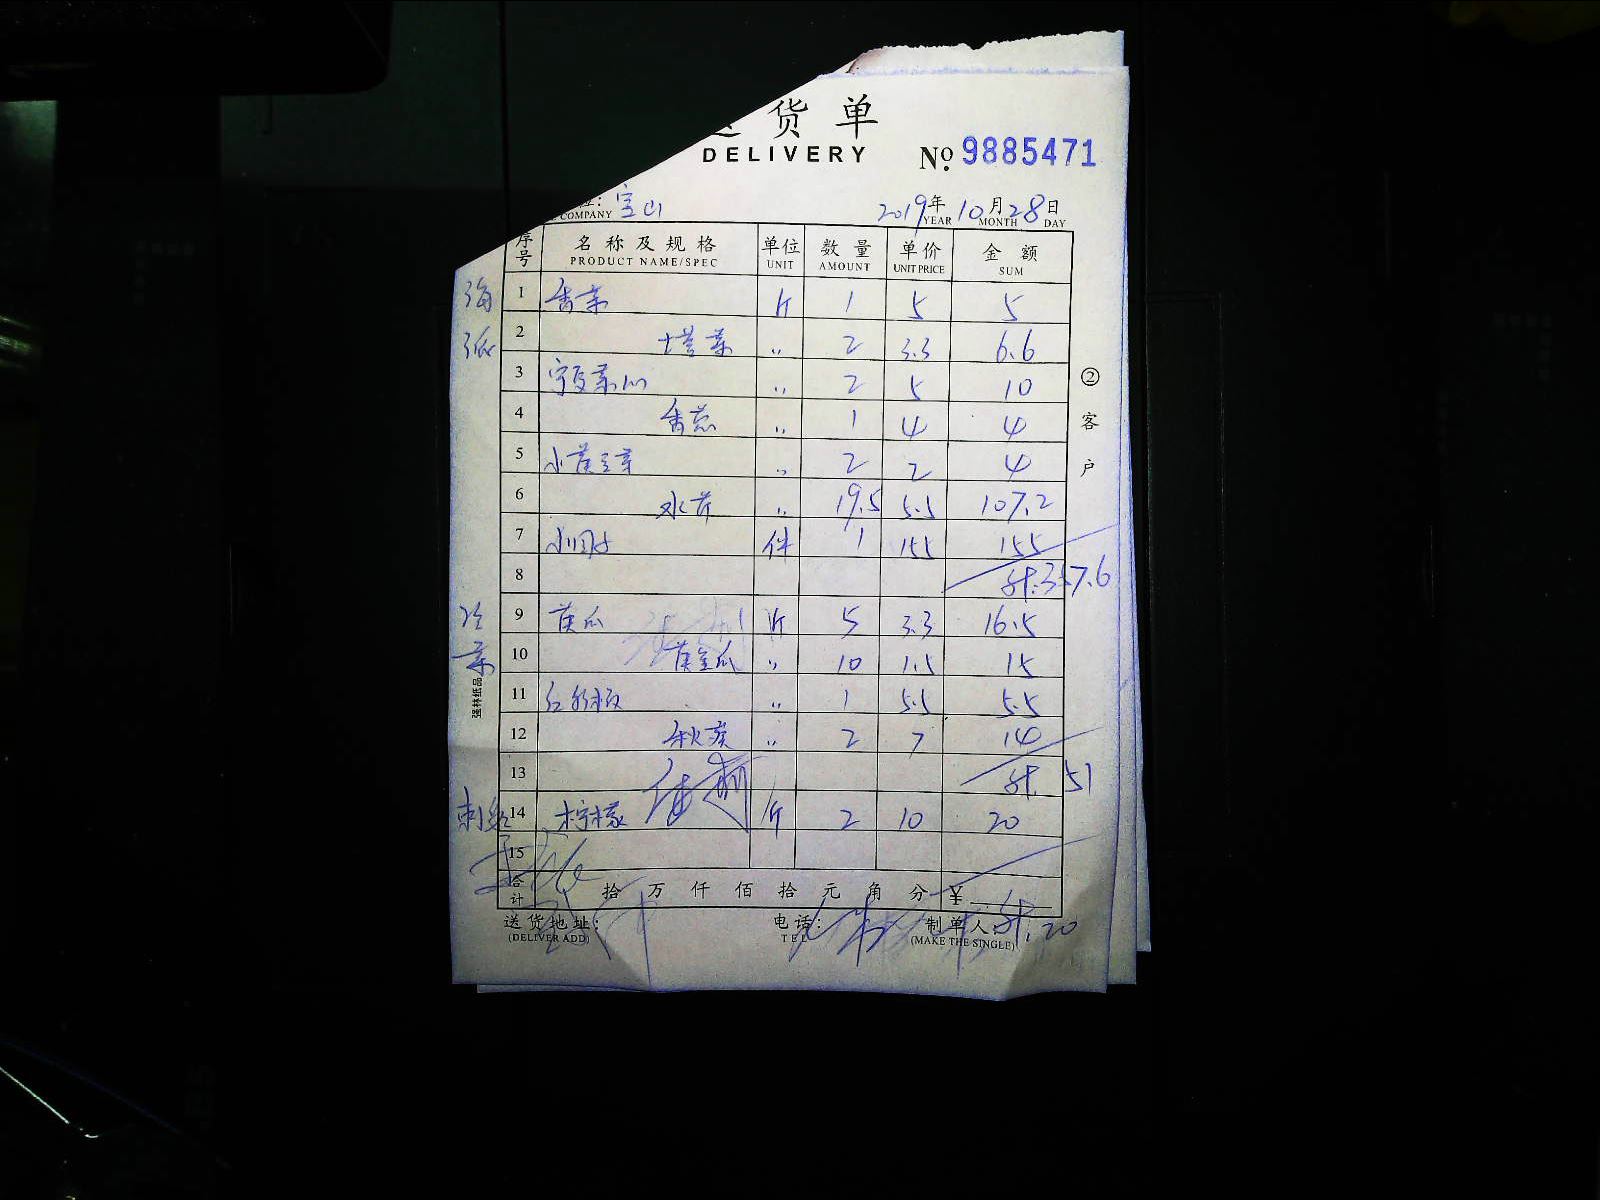 货 单
DELIVERY
No. 9885471
COMPANY 宝山
2019年 10月 28日
YEAR MONTH DAY
序号 名称及规格 单位 数量 单价 金额
PRODUCT NAME/SPEC UNIT AMOUNT UNIT PRICE SUM
1 香菜 斤 1 5 5
2 塔菜 〃 2 3.3 6.6
3 宁夏菜心 〃 2 5 10
4 香葱 〃 1 4 4
5 小黄豆芽 〃 2 2 4
6 水芹 〃 19.5 5.5 107.2
7 件 1 155 155
8
9 黄瓜 斤 5 3.3 16.5
10 黄金瓜 〃 10 1.5 15
11 〃 1 5.5 5.5
12 秋葵 〃 2 7 14
13 51
14 柠檬 斤 2 10 20
15
冷菜
② 客户
强林纸品
合计 拾 万 仟 佰 拾 元 角 分 ¥
20
送货地址: 电话: 制单人:
(DELIVER ADD) TEL (MAKE THE SINGLE)